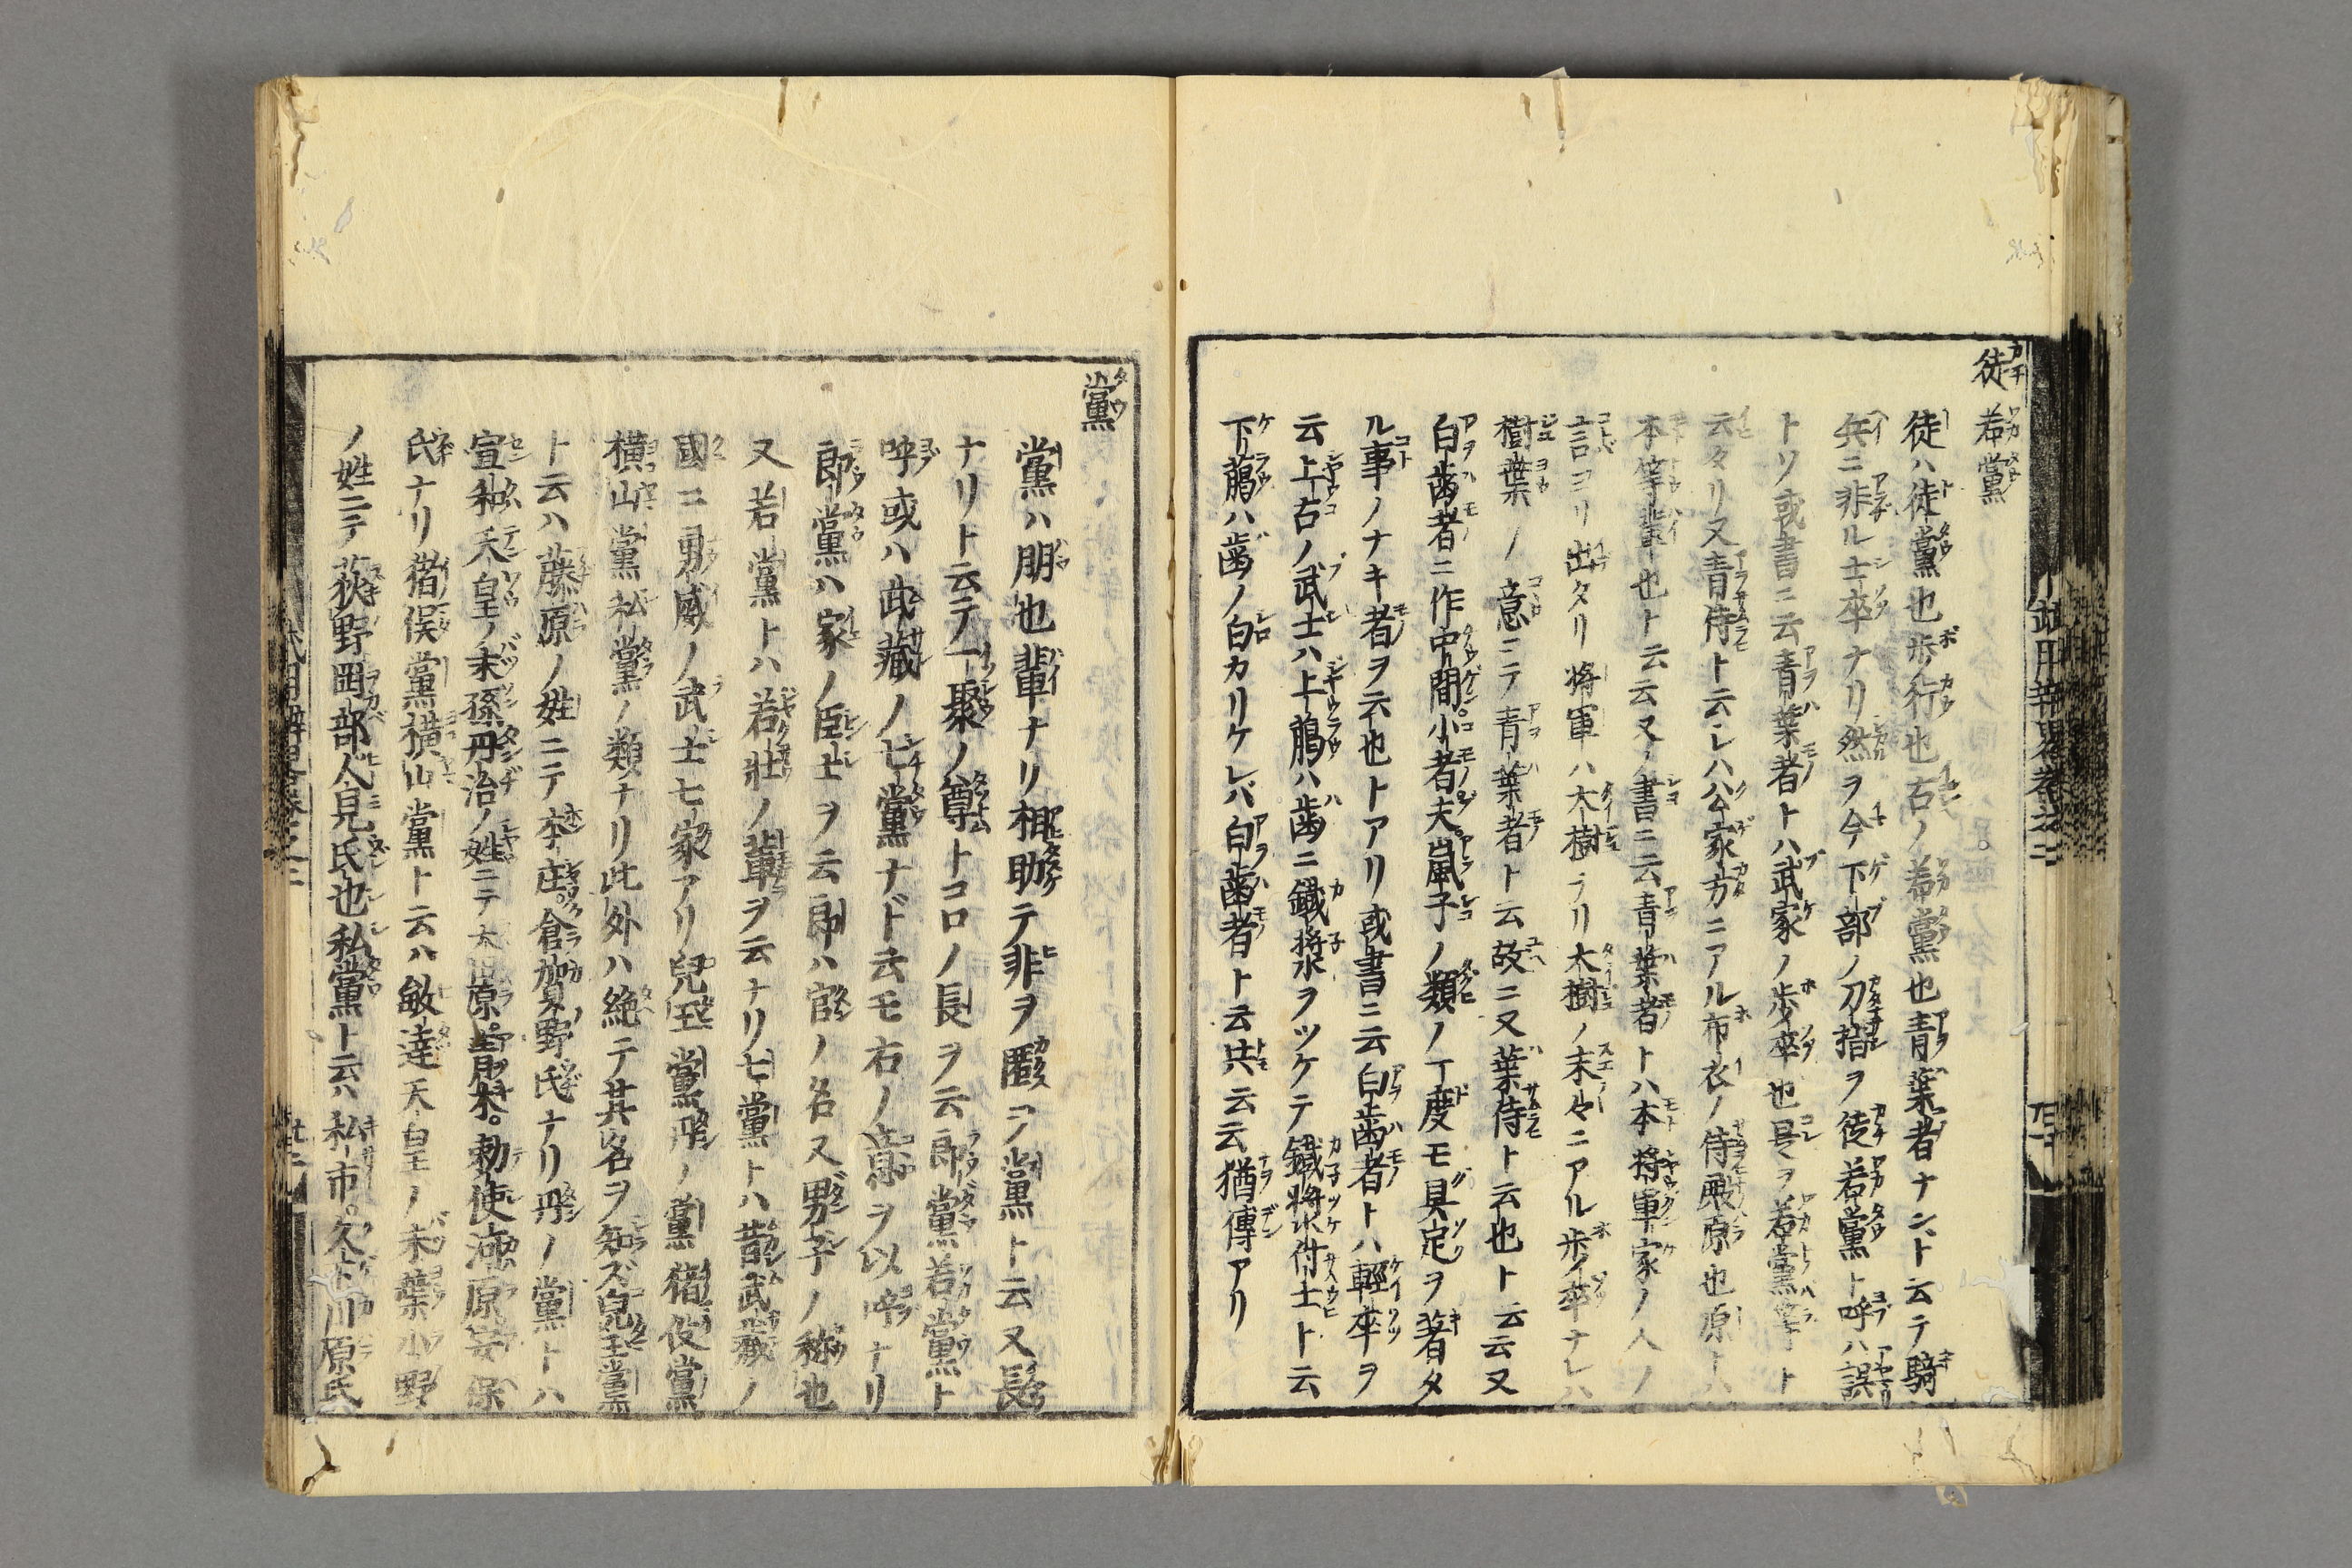 徒 若黨
徒ハ徒黨也歩行也古ノ若黨也青葉者ナント云テ騎
兵ニ非ル士卒ナリ然ヲ今下部ノ刀指ヲ徒若黨ト呼ハ誤
トソ或書ニ云青葉者トハ武家ノ歩卒也是ヲ若黨等ト
云タリ又青侍ト云レハ公家方ニアル布衣ノ侍殿原也原トハ
本等輩也ト云云又ノ書ニ云青葉者トハ本將軍家ノ人ノ
言ヨリ出タリ將軍ハ大樹ナリ大樹ノ末々ニアル歩卒ナレハ
樹葉ノ意ニテ青葉者ト云故ニ又葉侍ト云也ト云云又
白歯者ニ作中間小者夫嵐子ノ類ノ丁度モ具足ヲ著タ
ル事ノナキ者ヲ云也トアリ或書ニ云白歯者トハ輕卒ヲ
云上古ノ武士ハ上﨟ハ歯ニ鐵漿ヲツケテ鐵漿付士ト云
下﨟ハ歯ノ白カリケレバ白歯者ト云共云云猶傳アリ
黨
黨ハ朋也輩ナリ相助テ非ヲ匿ヲ黨ト云又長
ナリト云テ一聚ノ尊トコロノ長ヲ云郎黨若黨ト
呼或ハ武藏ノ七黨ナド云モ右ノ意ヲ以呼ナリ
郎黨ハ家ノ臣士ヲ云郎ハ官ノ名又男子ノ稱也
又若黨トハ若壯ノ輩ヲ云ナリ七黨トハ昔武藏ノ
國ニ勇威ノ武士七家アリ兒玉黨丹ノ黨猪俣黨
横山黨私黨ノ類ナリ此外ハ絶テ其名ヲ知ズ兒玉黨
ト云ハ藤原ノ姓ニテ本庄倉賀野氏ナリ丹ノ黨トハ
宣和天皇ノ末孫丹治ノ姓ニテ大田原青木勅使河原安保
氏ナリ猪俣黨横山黨ト云ハ敏達天皇ノ末葉小野
ノ姓ニテ荻野岡部人見氏也私黨ト云ハ私市久下川原氏